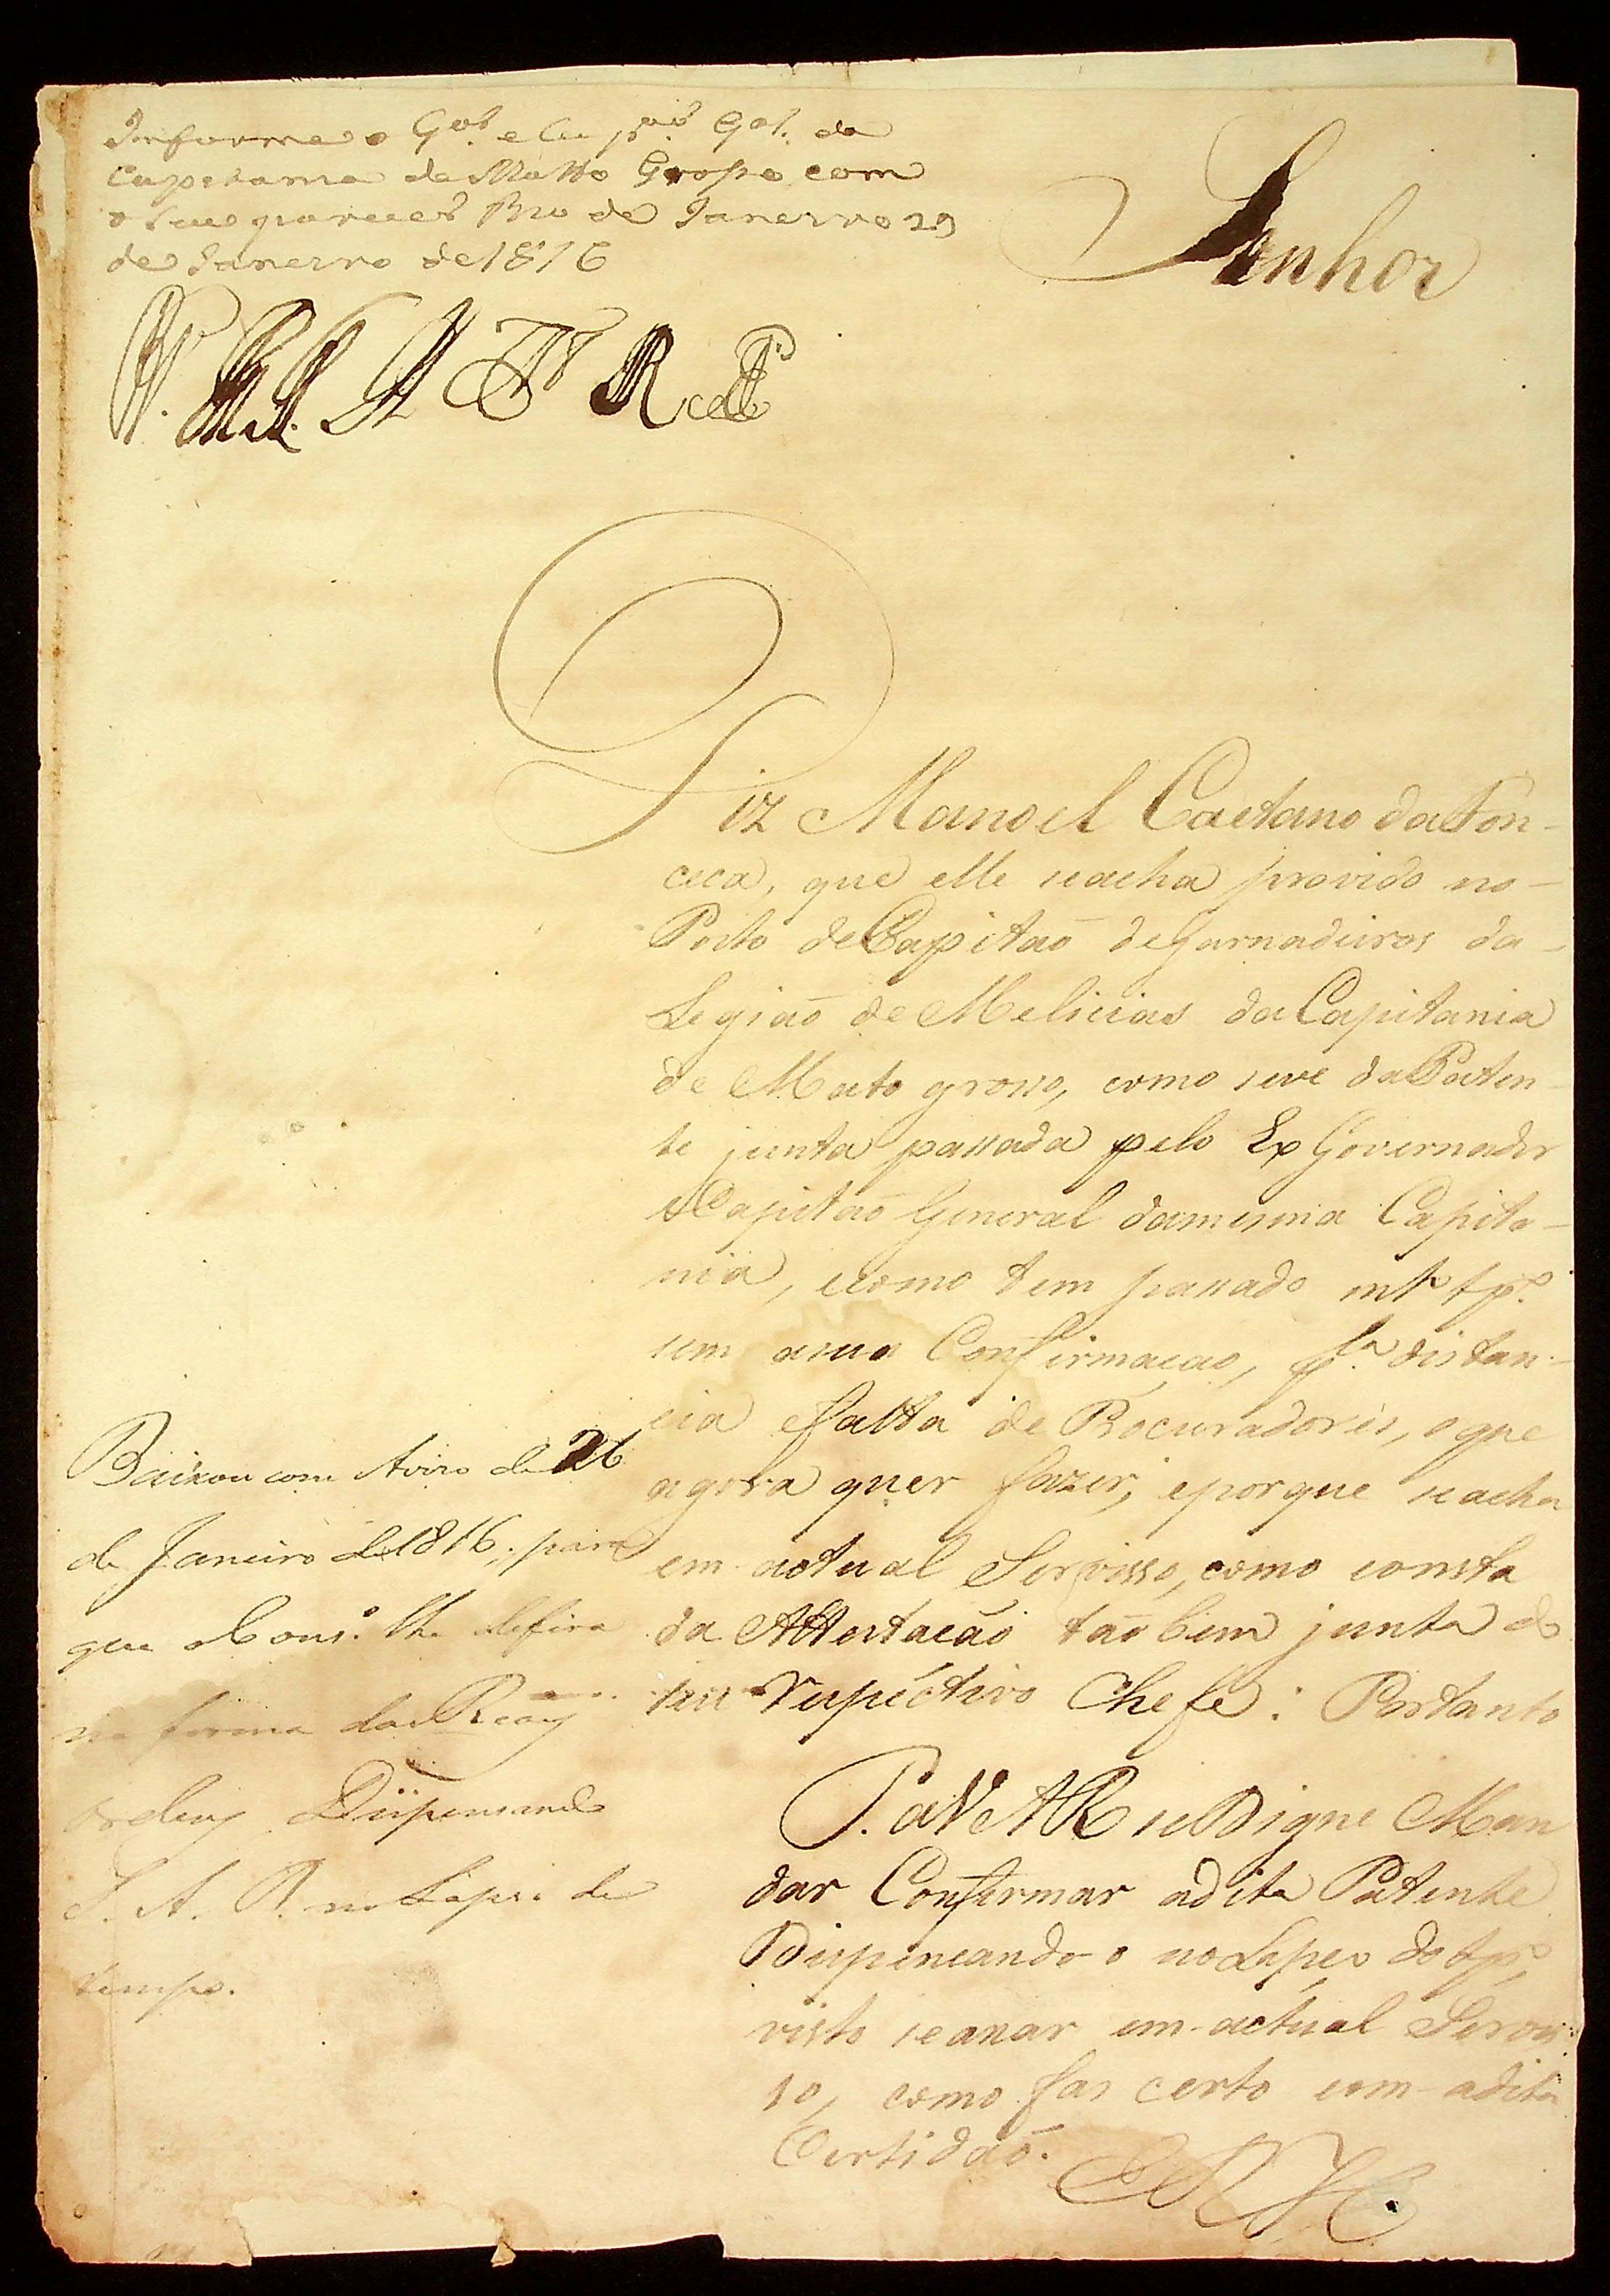 Informe o Gor. e Cap.am Gal. da
Capitania de Matto Grosso com
o seu parecer Rio de Janerro 29
de Janerro de 1816
Senhor
Diz Manoel Caetano da Fon-
ceca, que elle se acha provido no-
Posto de Capitaõ de Garnadeiros da-
Legiaõ de Melicias da Capitania
de Mato grosso, como se vê da Paten-
te junta passada pelo Ex Governador
e Capitaõ General da mesma Capita-
nia, e como tem passado mto tpo.
sem a sua Confirmaçaõ, pla distan-
cia e falta de Procuradores, o que
agora quer fazer; e porque se acha
em actual Servisso, como consta
da Attestacaõ taõ bem junta do
seu respéctivo Chefe: Portanto
P. a V A R se Digne Man
dar Confirmar a dita Patente
Dispencando o no Lapço do tpo,
visto se axar em actual Servis-
so, como fas certo com a dita
Certidaõ.
E R Mce.
Baixou com Aviso de 26
de Janeiro de 1816, para
que o Cons.o lhe defira
na forma das Reaes
ordens, Dispensando
S. A. R. no Lapso de
tempo.